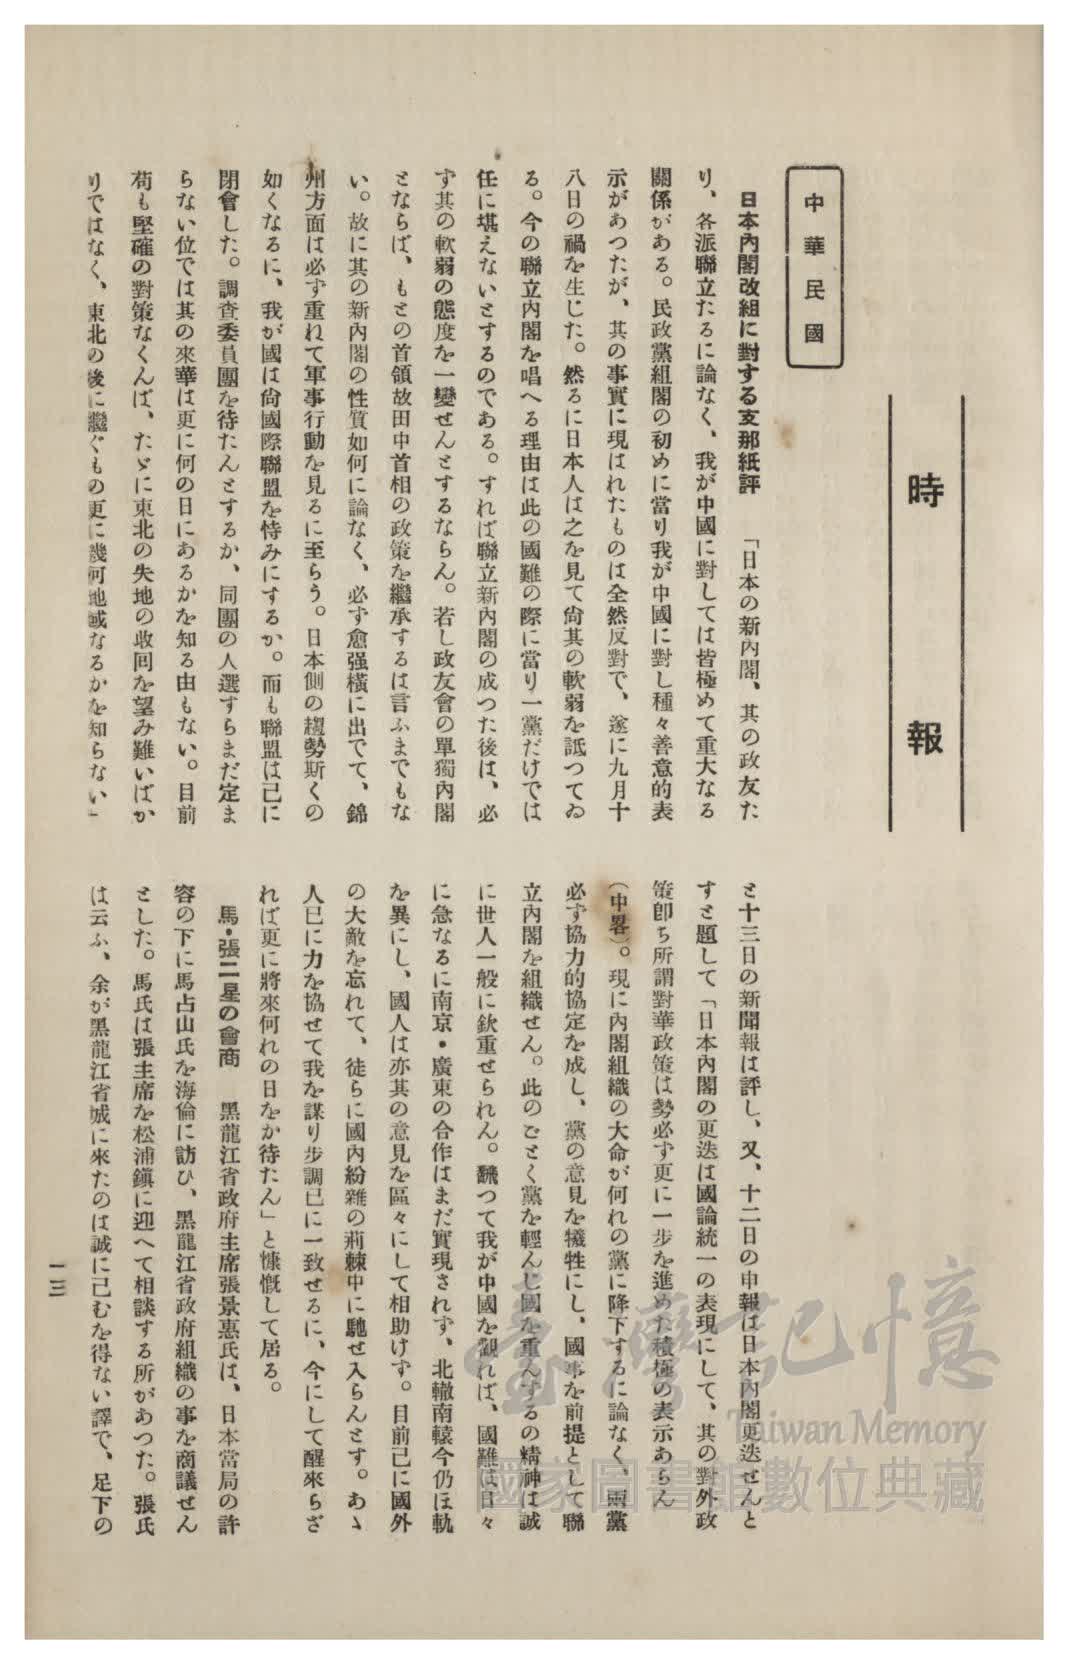 時報
中華民國
日本內閣改組に對する支那紙評　「日本の新內閣、其の政友た
り、各派聯立たるに論なく、我が中國に對しては皆極めて重大なる
關係がある。民政黨組閣の初めに當り我が中國に對し種々善意的表
示があつたが、其の事實に現はれたものは全然反對で、遂に九月十
八日の禍を生じた。然るに日本人は之を見て尙其の軟弱を詆つてゐ
る。今の聯立內閣を唱へる理由は此の國難の際に當り一黨だけでは
任に堪えないとするのである。すれば聯立新內閣の成つた後は、必
ず其の軟弱の態度を一變せんとするならん。若し政友會の單獨內閣
とならば、もとの首領故田中首相の政策を繼承するは言ふまでもな
い。故に其の新內閣の性質如何に論なく、必ず愈强橫に出でて、錦
州方面は必ず重ねて軍事行動を見るに至らう。日本側の趨勢斯くの
如くなるに、我が國は尙國際聯盟を恃みにするか。而も聯盟は已に
閉會した。調查委員團を待たんとするか、同團の人選すらまだ定ま
らない位では其の來華は更に何の日にあるかを知る由もない。目前
苟も堅確の對策なくんば、たゞに東北の失地の收回を望み難いばか
りではなく、東北の後に繼ぐもの更に幾何地域なるかを知らない」
と十三日の新聞報は評し、又、十二日の申報は日本內閣更迭せんと
すと題して「日本內閣の更迭は國論統一の表現にして、其の對外政
策卽ち所謂對華政策は勢必ず更に一步を進めた積極の表示あらん
（中畧）。現に內閣組織の大命が何れの黨に降下するに論なく、兩黨
必ず協力的協定を成し、黨の意見を犧牲にし、國事を前提として聯
立內閣を組織せん。此のごとく黨を輕んじ國を重んずるの精神は誠
に世人一般に欽重せられん。飜つて我が中國を觀れば、國難は日々
に急なるに南京・廣東の合作はまだ實現されず、北轍南轅今仍ほ軌
を異にし、國人は亦其の意見を區々にして相助けず。目前已に國外
の大敵を忘れて、徒らに國內紛雜の荊棘中に馳せ入らんとす。あゝ
人已に力を協せて我を謀り步調已に一致せるに、今にして醒來らざ
れば更に將來何れの日をか待たん」と慷慨して居る。
馬・張二星の會商　黑龍江省政府主席張景惠氏は、日本當局の許
容の下に馬占山氏を海倫に訪ひ、黑龍江省政府組織の事を商議せん
とした。馬氏は張主席を松浦鎭に迎へて相談する所があつた。張氏
は云ふ、余が黑龍江省城に來たのは誠に已むを得ない譯で、足下の
一三
臺灣記憶
Taiwan Memory
國家圖書館數位典藏